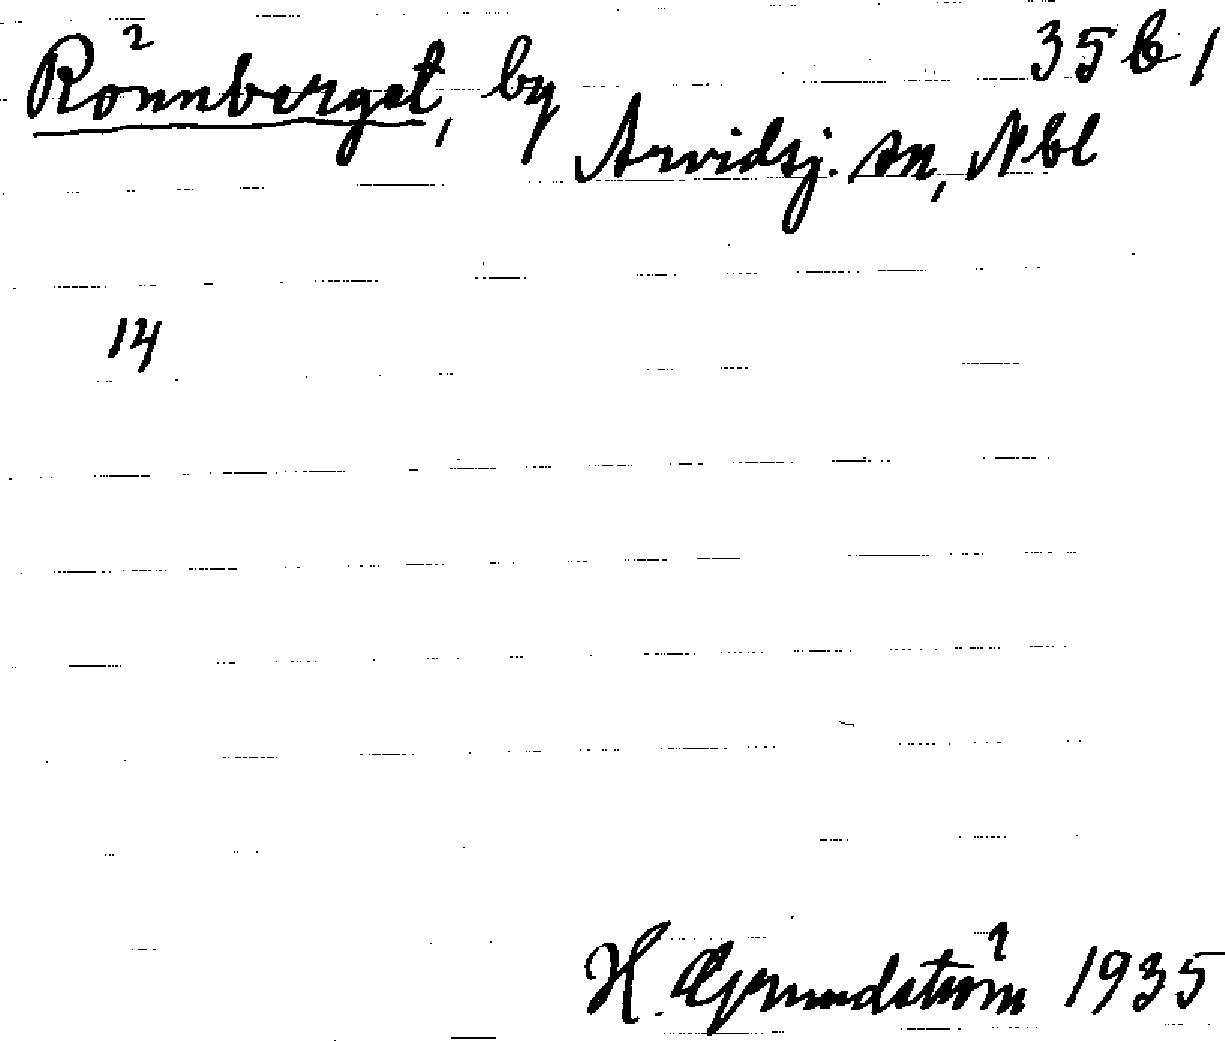 Rönnberget, by 35 b 1
Arvidsj. sn, Nbl
14
H. Grundström 1935